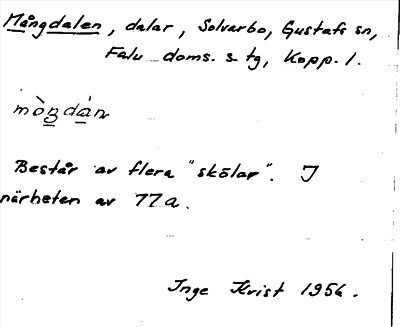 Mångdalen, dalar, Solvarbo, Gustafs sn,
Falu doms. s tg, Kopp. l.
mòŋdàn
Består av flera "skölar". I
närheten av 77a.
Inge Krist 1954.